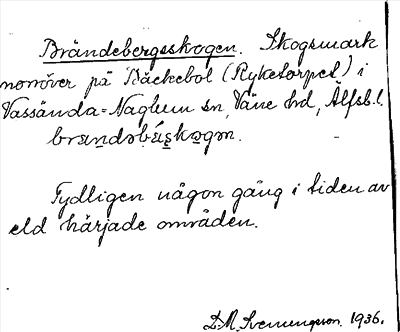 Brändebergsskogen. Skogsmark
norröver på Bäckebol (Ryketorpet) i
Vassända-Naglum sn, Väne hd, Älfsb. l.
brændəbæ̀rskogən.
Tydligen någon gång i tiden av
eld härjade områden.
D.M. Svenungsson. 1936.